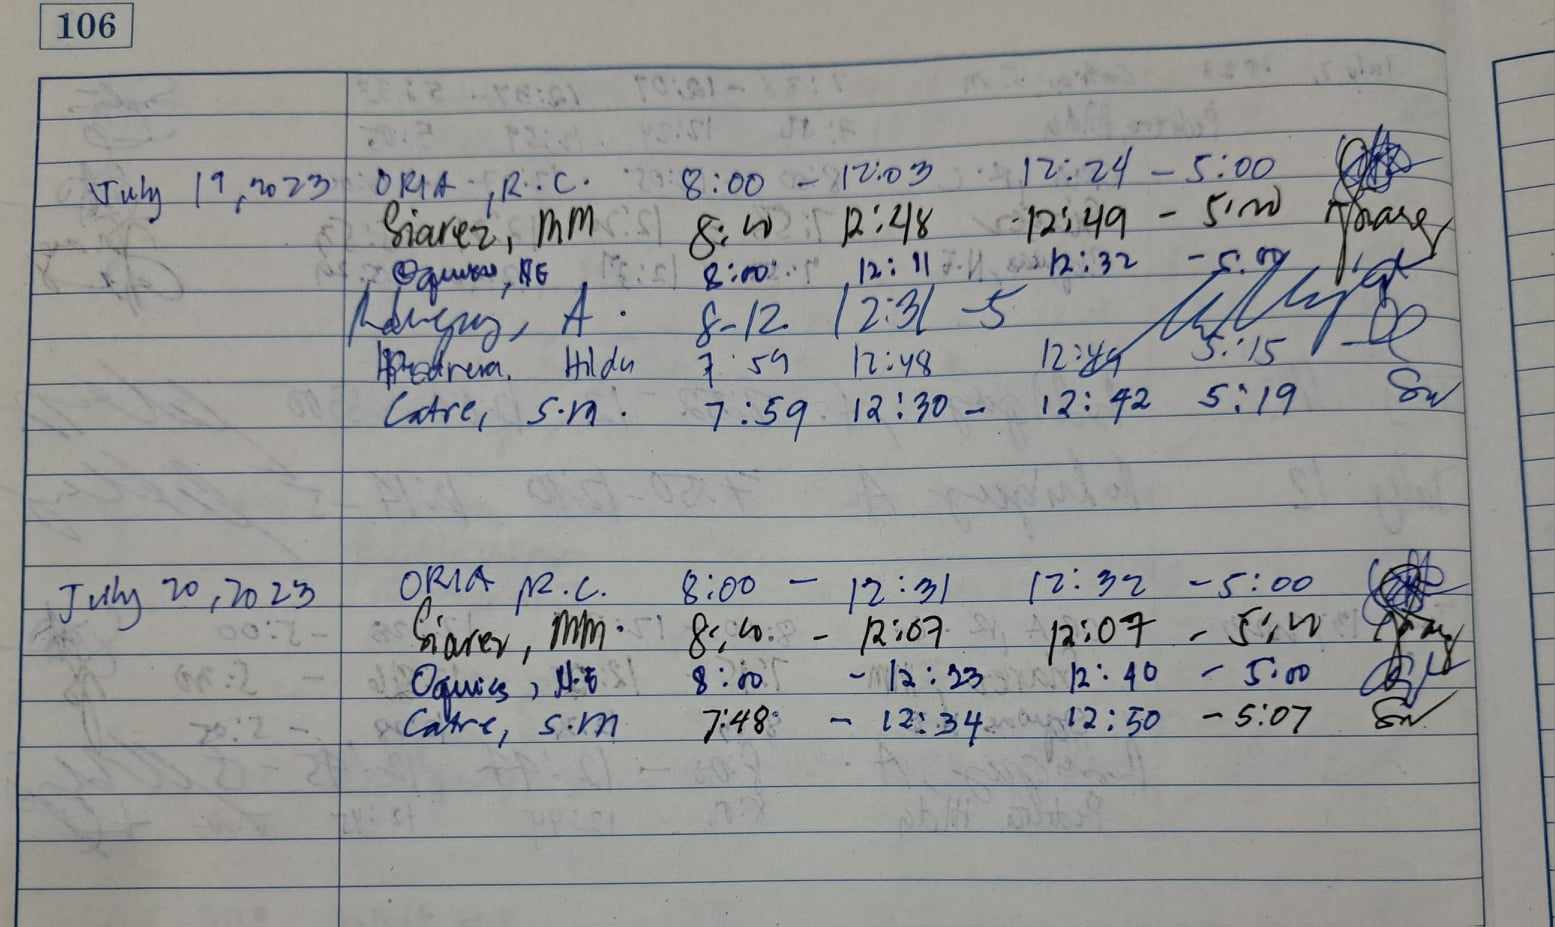 106
July 19, 2023 ORIA, R.C. 8:00 - 12:03 12:24 - 5:00
Siarez, MM 8:00 12:48 12:49 - 5:00
8:00 12:11 12:32 - 5:00
A. 8-12 12:31 -5
Pedrera, Hilda 7:59 12:48 12:49 5:15
Catre, S.M. 7:59 12:30 - 12:42 5:19
July 20, 2023 ORIA, R.C. 8:00 - 12:31 12:32 - 5:00
Siarez, MM. 8:00 - 12:07 12:07 - 5:00
8:00 - 12:33 12:40 - 5:00
Catre, S.M 7:48 - 12:34 12:50 - 5:07